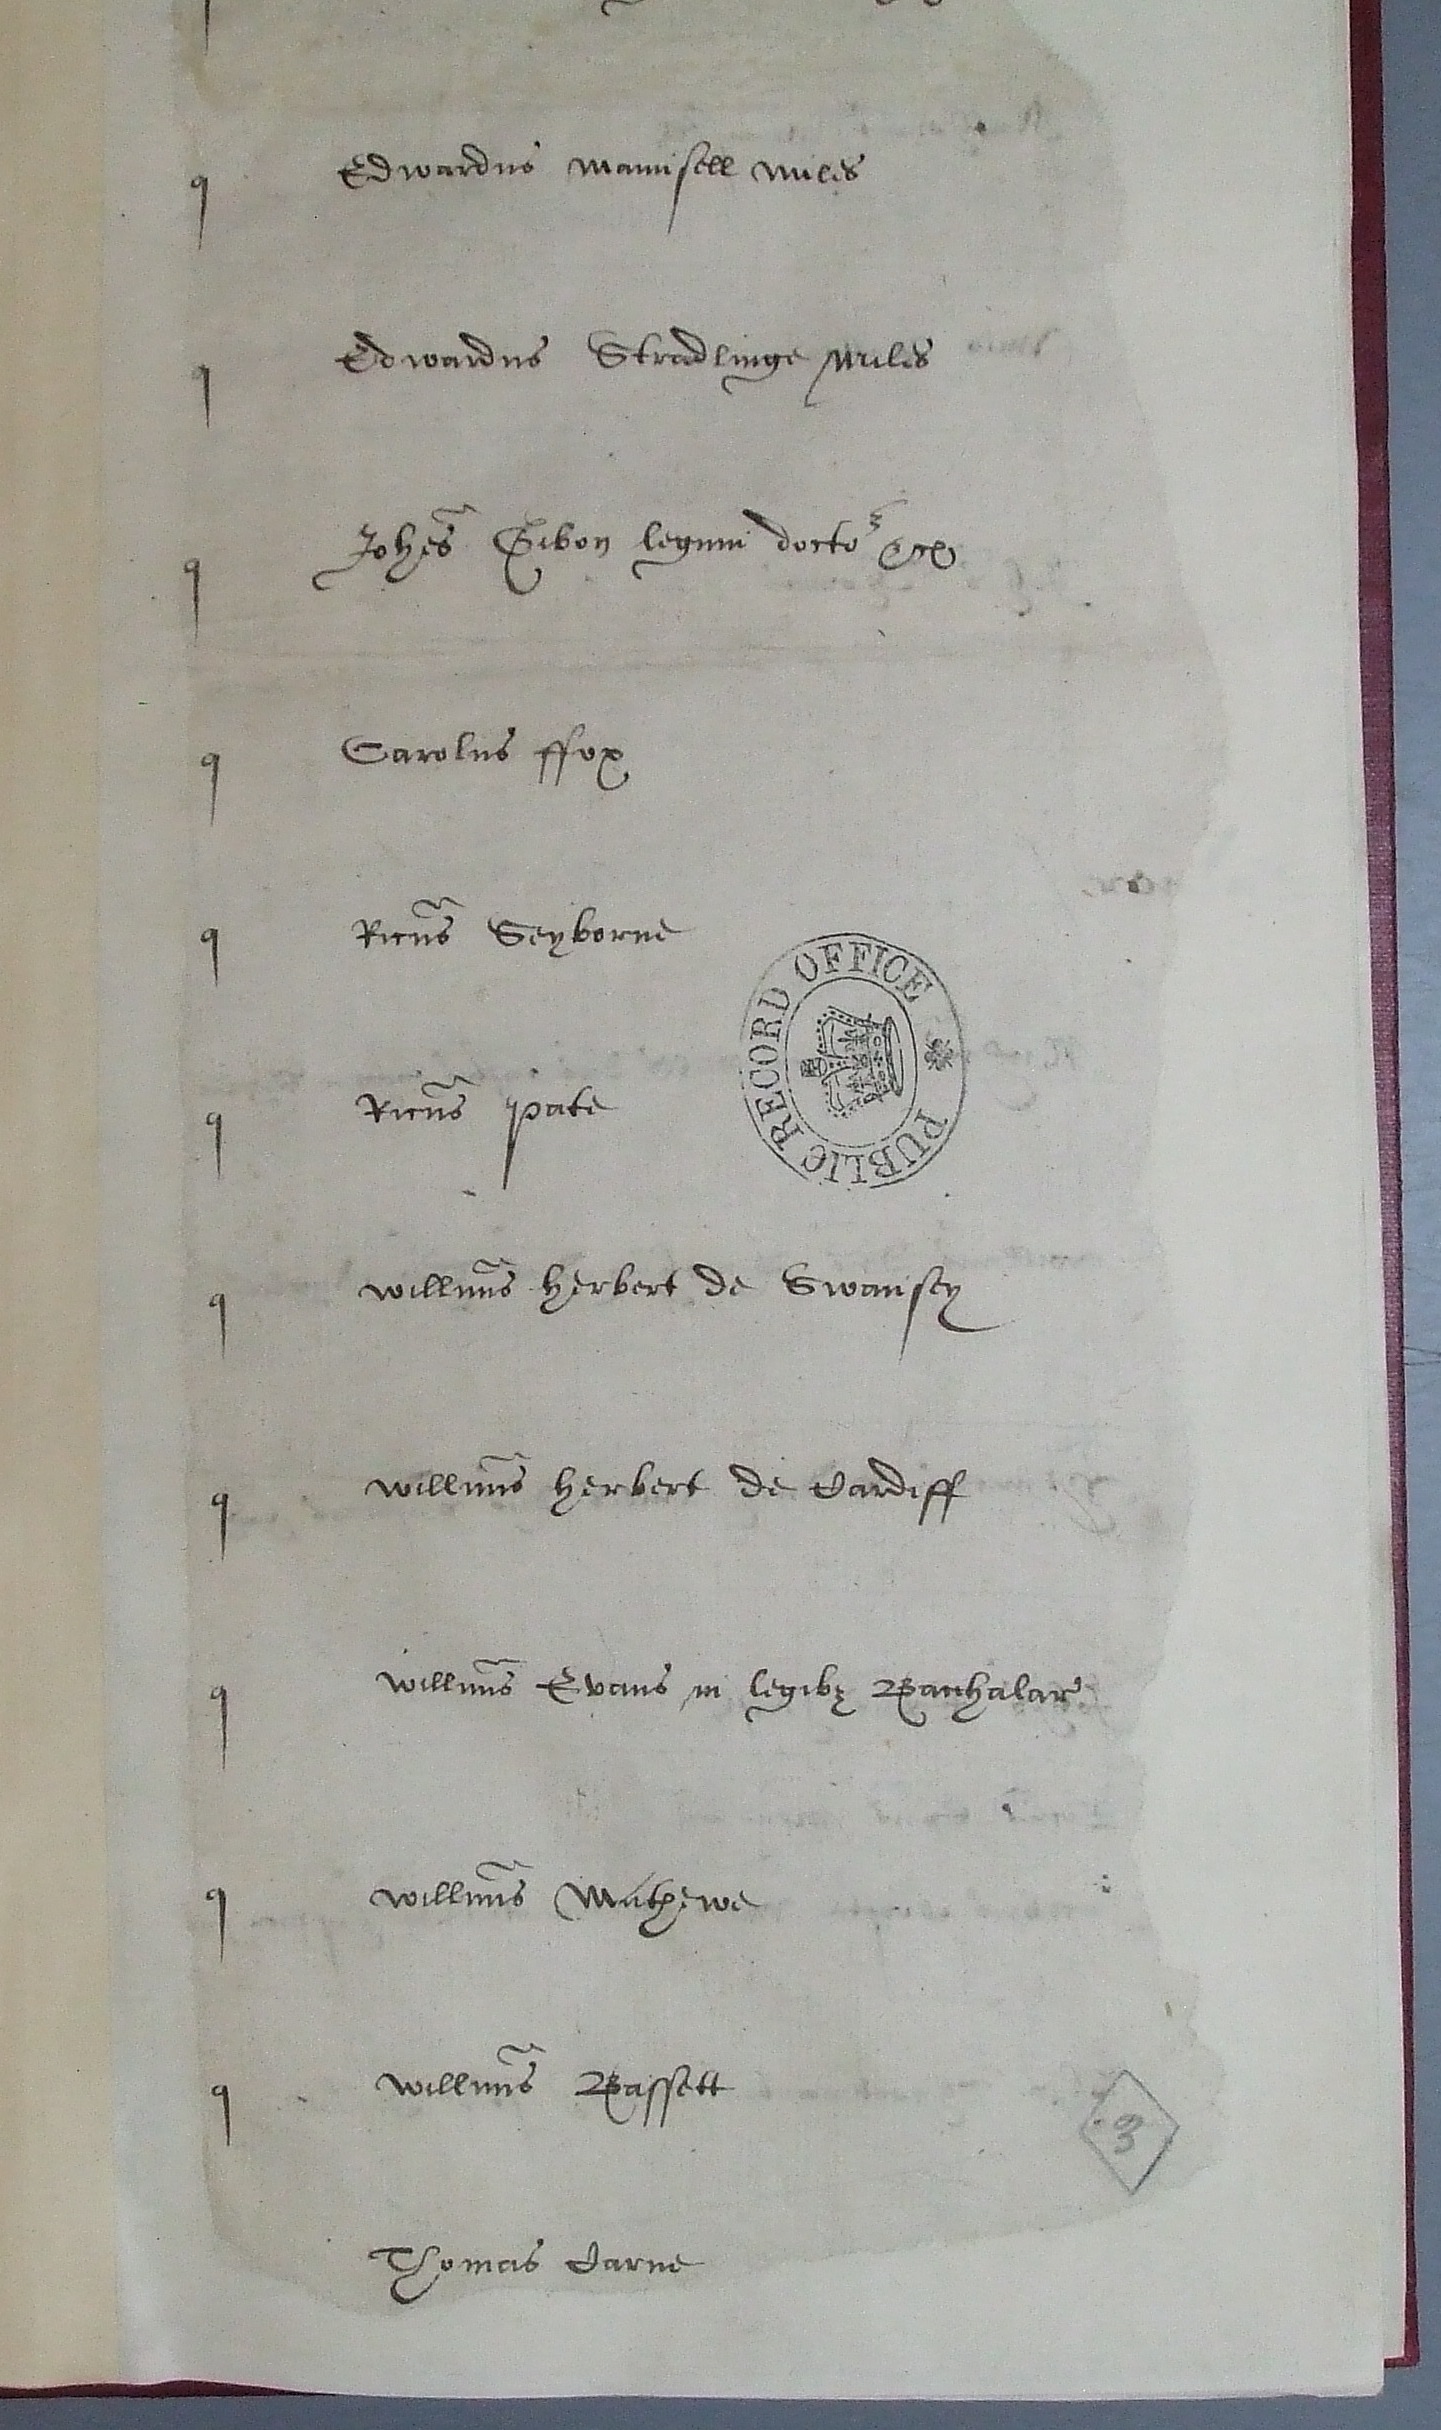 q Edwardus Mannsell miles
q Edwardus Stradlinge miles
q Johes Gibon legum doctor
q Carolus ffox
q Ricus Seyborne
PUBLIC RECORD OFFICE
q Ricus Pate
q Willmus Herbert de Swansey
q Willmus Herbert de Cardiff
q Willmus Evans in legibz Bacchalar
q Willmus Mathewe
q Willmus Bassett
3
Thomas Carne